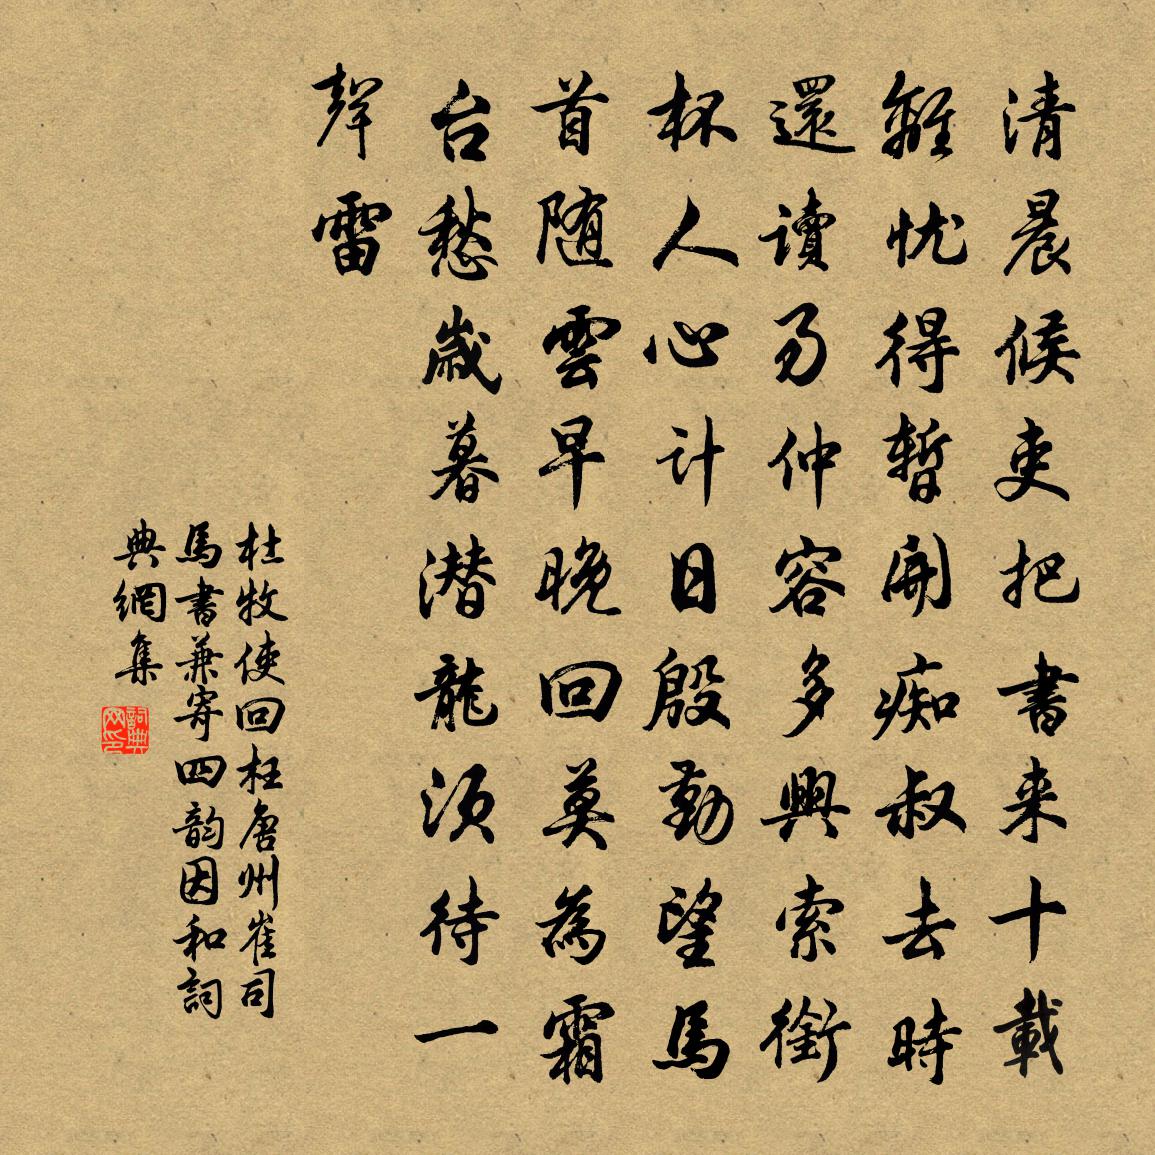 清晨候吏把書来十載
離忧得暫開痴叔去時
還讀易仲容多興索銜
杯人心计日殷勤望馬
首随雲早晚回莫為霜
台愁歲暮潜龍須待一
聲雷
杜牧使回枉唐州崔司
馬書兼寄四韵因和詞
典網集
詞典
网印